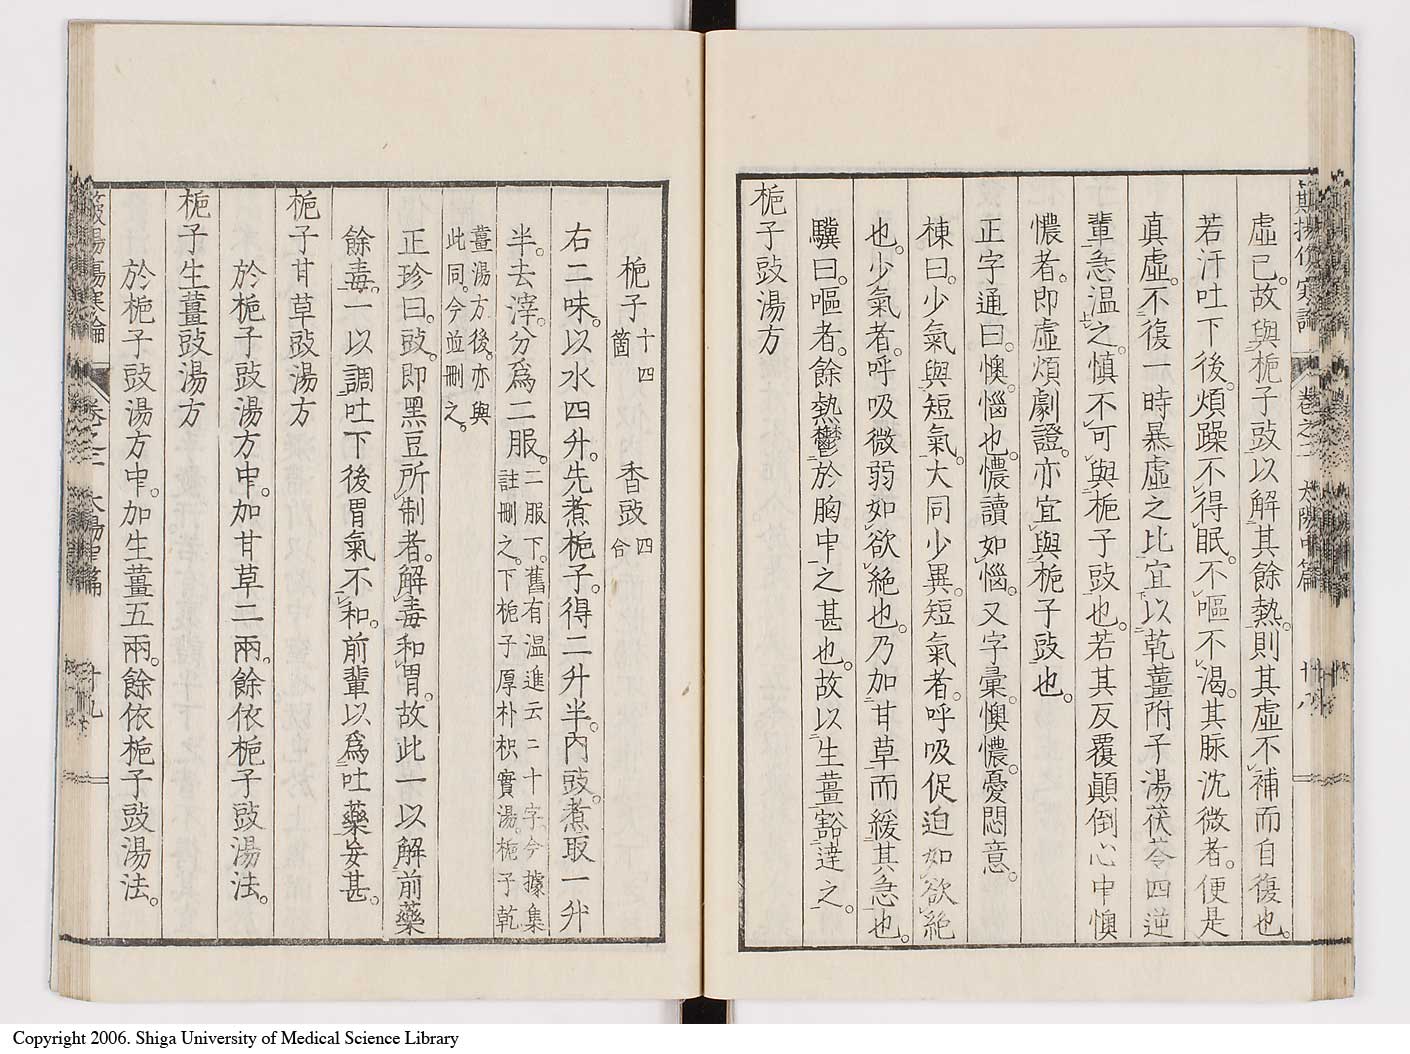 虛已。故與梔子豉以解其餘熱。則其虛不補而自復也。
若汗吐下後。煩躁不得眠。不嘔不渴。其脉沈微者。便是
真虛。不復一時暴虛之比。宜以乾薑附子湯茯苓四逆
輩急溫之。慎不可與梔子豉也。若其反覆顚倒心中懊
憹者。即虛煩劇證。亦宜與梔子豉也。
正字通曰。懊。惱也。憹讀如惱。又字彙。懊憹。憂悶意。
棟曰。少氣與短氣。大同少異。短氣者。呼吸促迫如欲絕
也。少氣者。呼吸微弱如欲絕也。乃加甘草而緩其急也。
驥曰。嘔者。餘熱鬱於胸中之甚也。故以生薑豁達之。
梔子豉湯方
梔子十四箇 香豉四合
右二味。以水四升。先煮梔子。得二升半。內豉。煮取一升
半。去滓。分爲二服。二服下。舊有溫進云云二十字今據集
註刪之。下梔子厚朴枳實湯。梔子乾
薑湯方後。亦與
此同。今並刪之。
正珍曰。豉。即黑豆所制者。解毒和胃。故此一以解前藥
餘毒。一以調吐下後胃氣不和。前輩以爲吐藥妄甚。
梔子甘草豉湯方
於梔子豉湯方中。加甘草二兩。餘依梔子豉湯法。
梔子生薑豉湯方
於梔子豉湯方中。加生薑五兩。餘依梔子豉湯法。